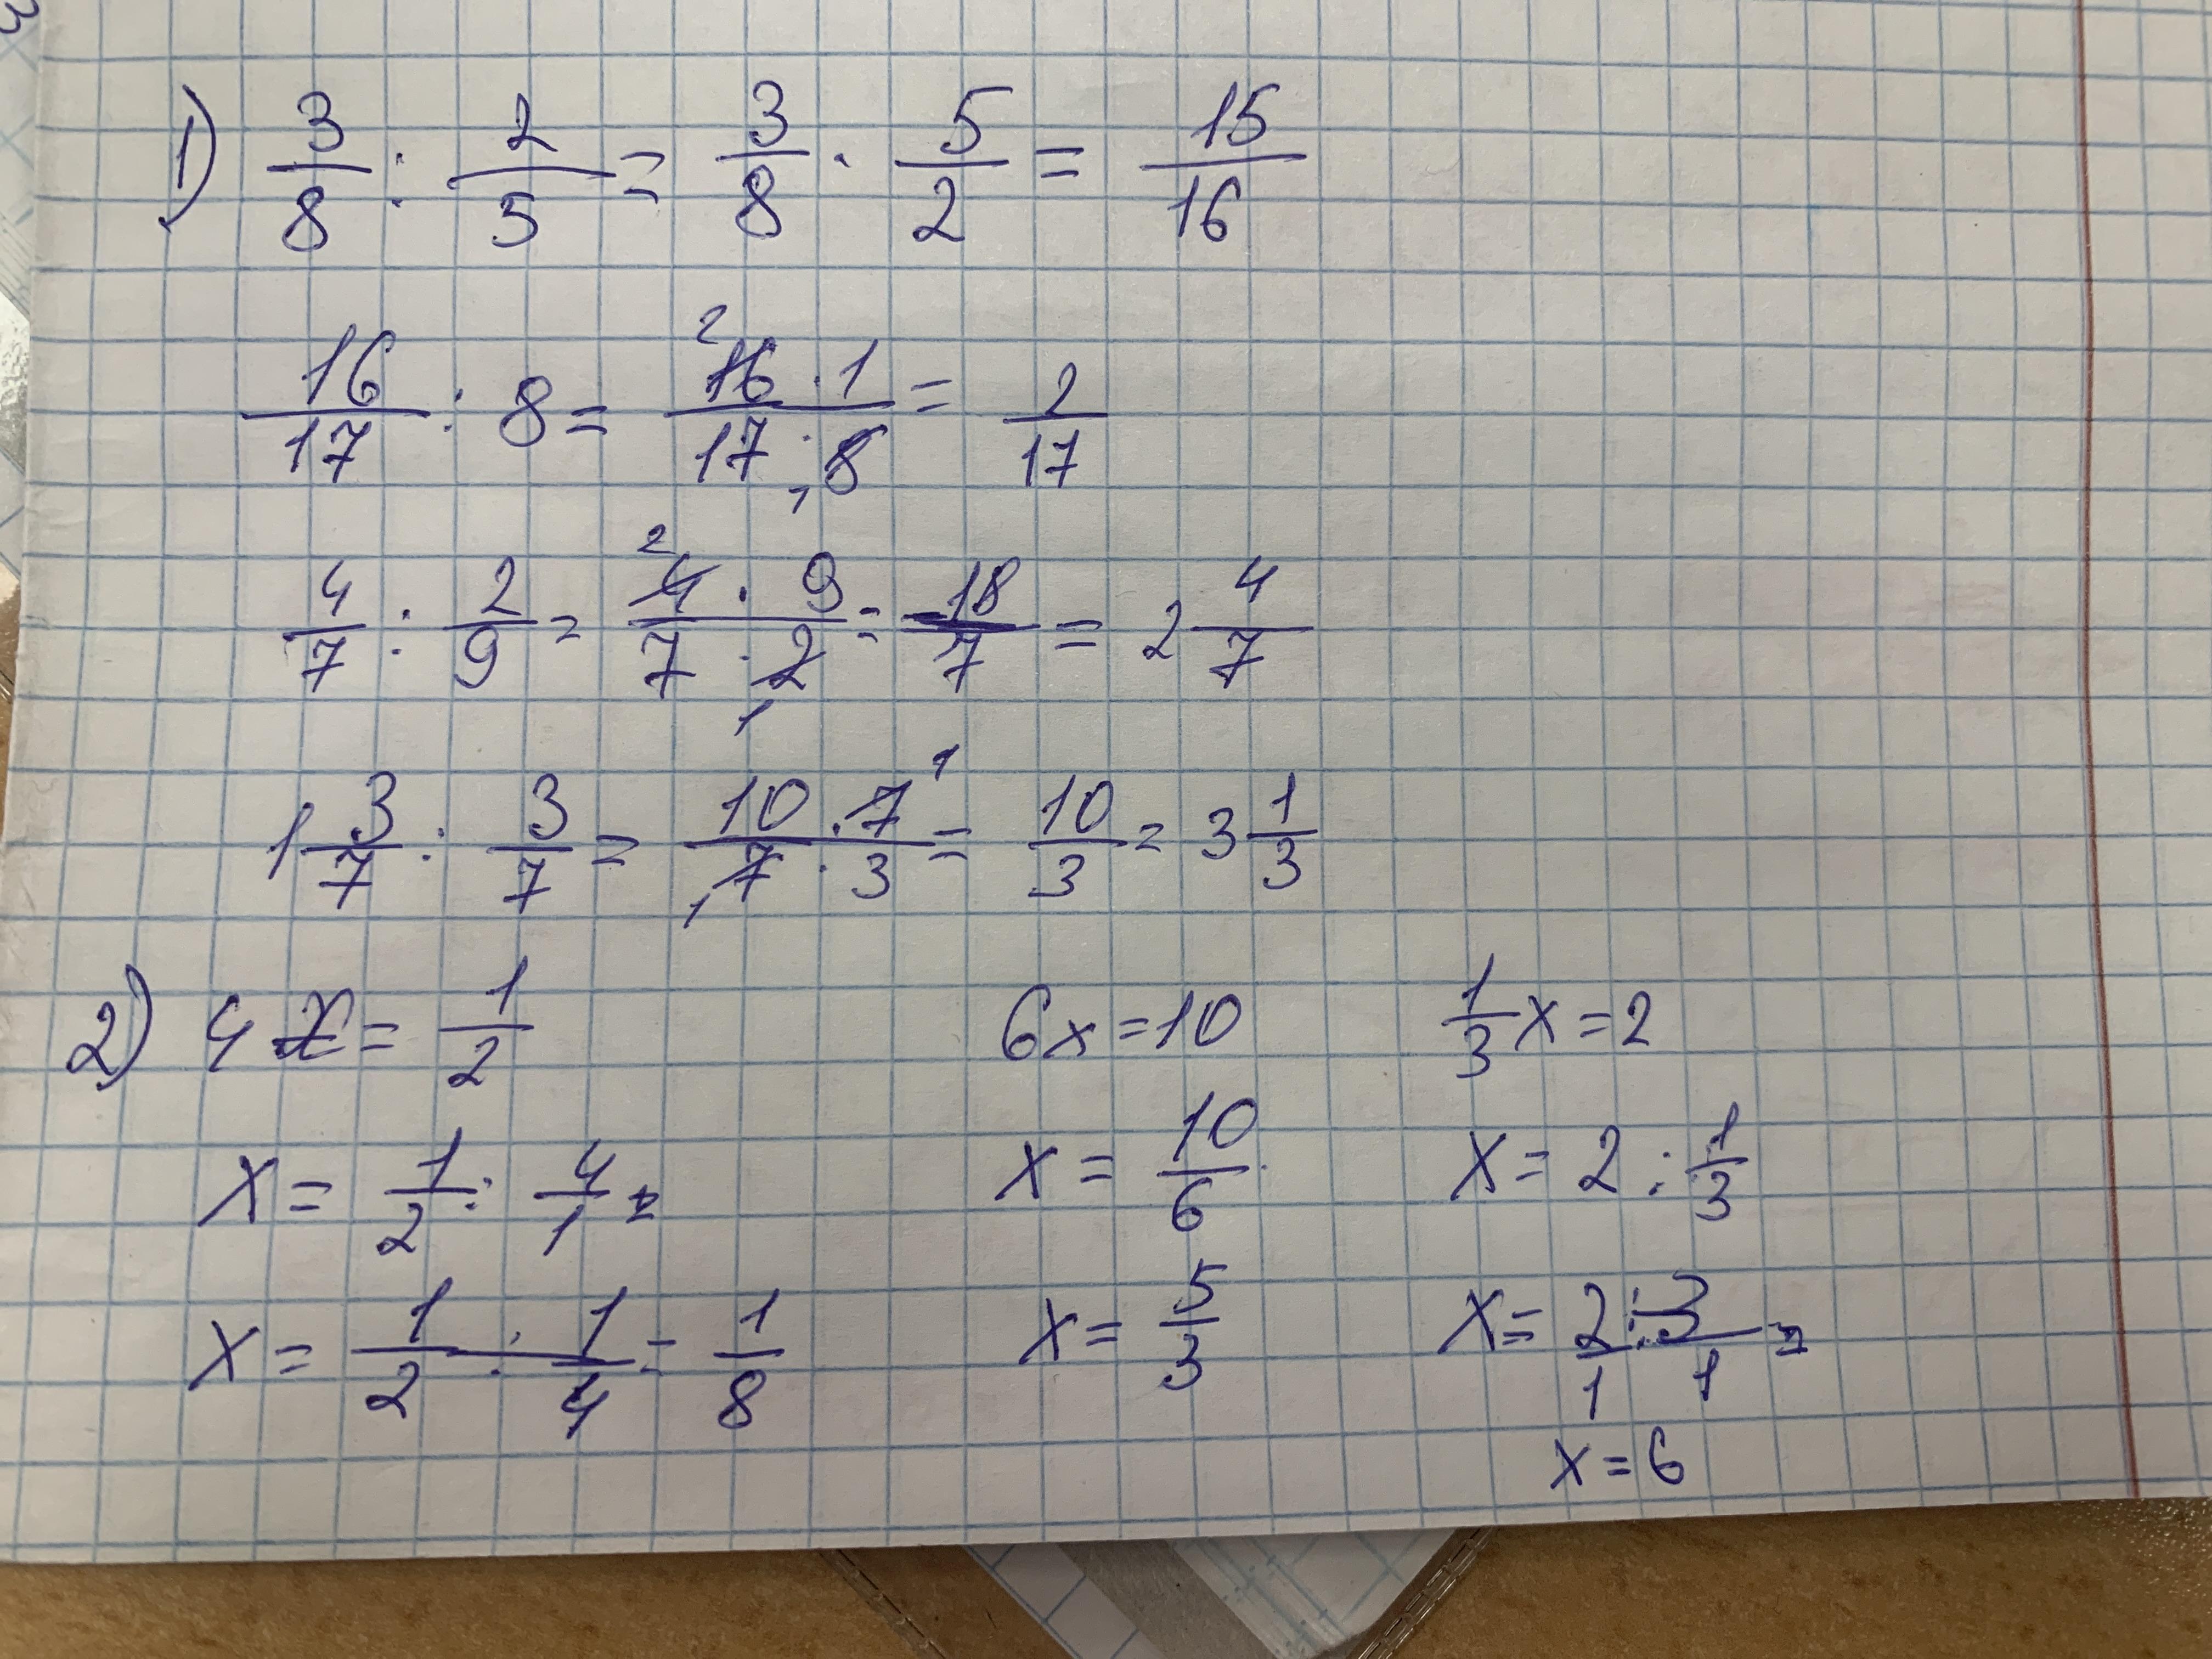 1) 3/8 : 2/5 = 3/8 · 5/2 = 15/16
16/17 : 8 = 16 · 1 / 17 · 8 = 2/17
4/7 : 2/9 = 4 · 9 / 7 · 2 = 18/7 = 2 4/7
1 3/7 : 3/7 = 10 · 7 / 7 · 3 = 10/3 = 3 1/3
2) 4x = 1/2
x = 1/2 : 4/1 =
x = 1/2 : 1/4 = 1/8
6x = 10
x = 10/6
x = 5/3
1/3 x = 2
x = 2 : 1/3
x = 2/1 : 3/1 =
x = 6